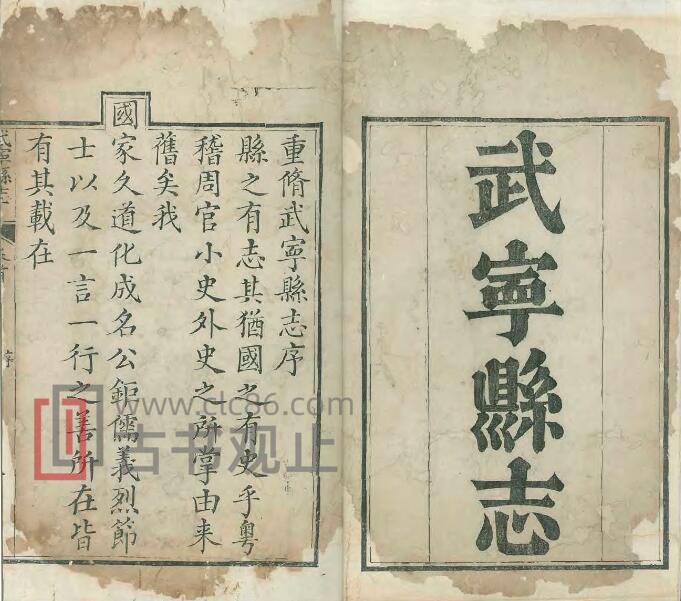 武寧縣志
重脩武寧縣志序
縣之有志其猶國之有史乎粤
稽周官小史外史之所掌由来
舊矣我
國家久道化成名公鉅儒義烈節
士以及一言一行之善所在皆
有其載在
武寧縣志
序
www.ctc86.com
古书观止